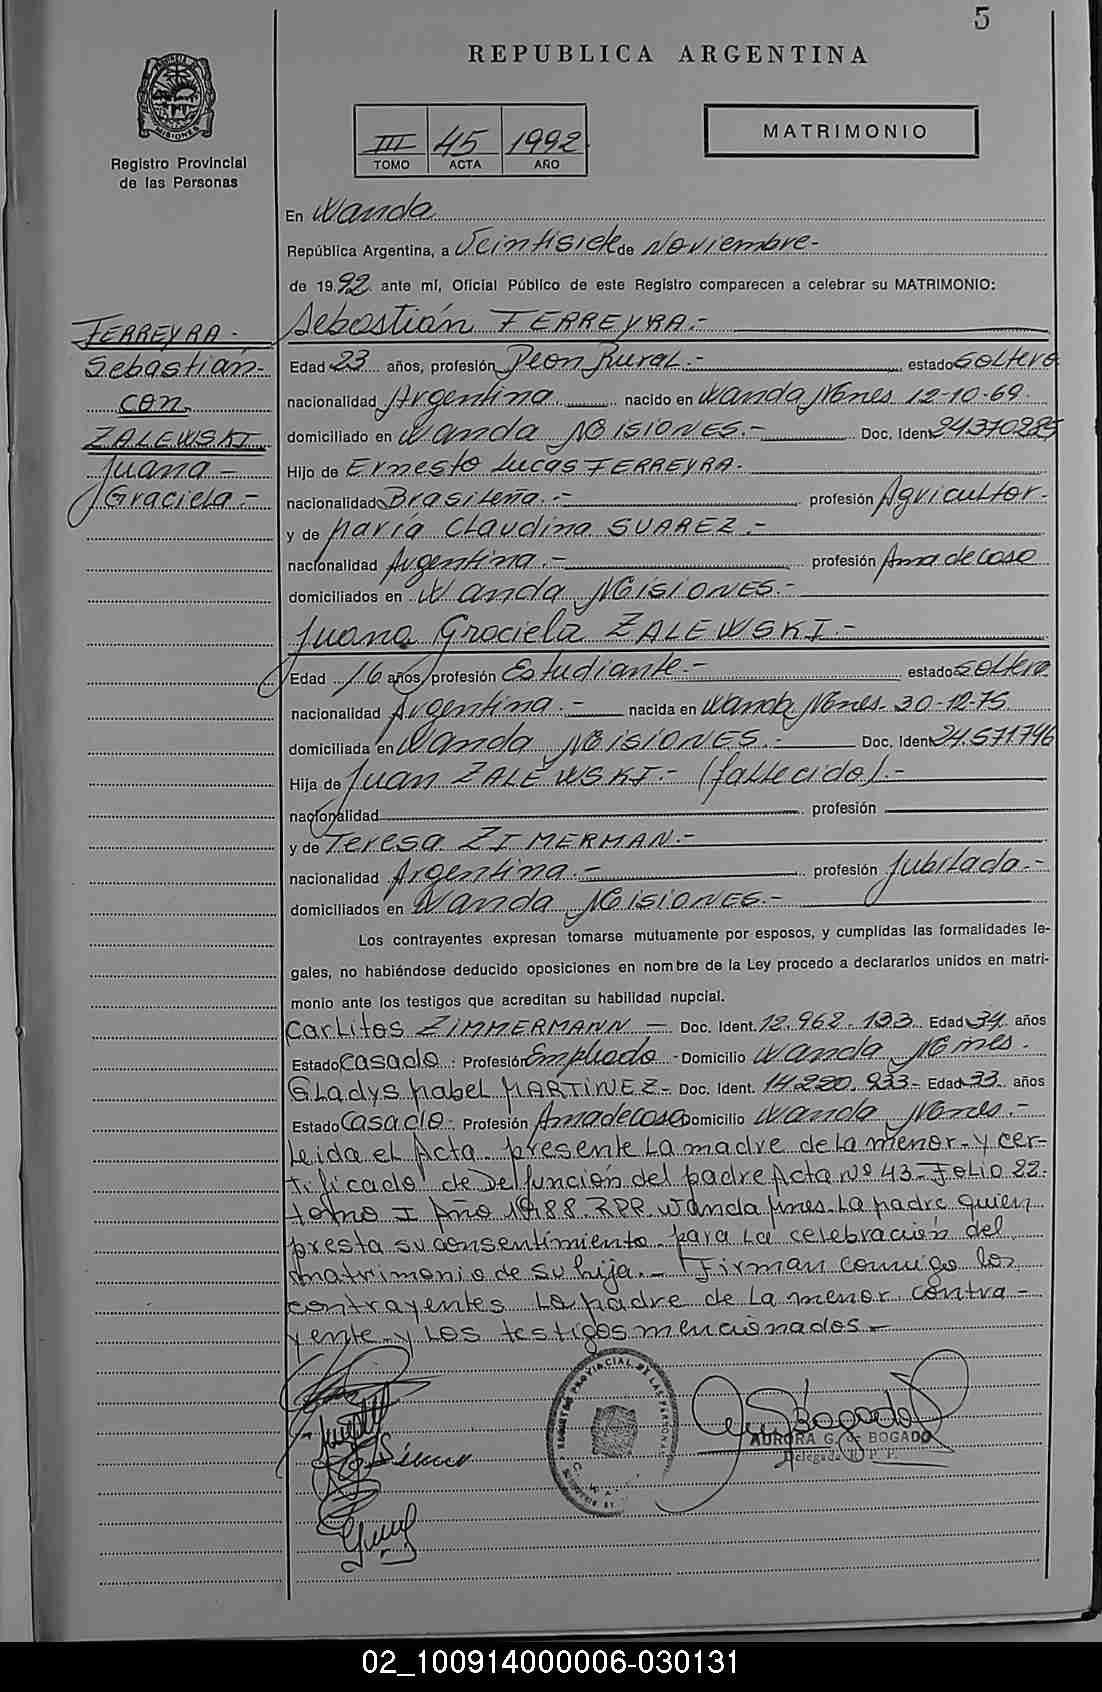 5
REPUBLICA ARGENTINA
PROVINCIA DE MISIONES
Registro Provincial
de las Personas
III 45 1992
TOMO ACTA AÑO
MATRIMONIO
En Wanda
República Argentina, a Veintisiete de Noviembre.-
de 1992 ante mí, Oficial Público de este Registro comparecen a celebrar su MATRIMONIO:
FERREYRA.-
Sebastián-
con
ZALEWSKI
Juana-
Graciela.-
Sebastián FERREYRA.-
Edad 23 años, profesión Peon Rural.- estado soltero
nacionalidad Argentina nacido en Wanda Mnes 12-10-69.
domiciliado en Wanda MISIONES.- Doc. Ident 24370285
Hijo de Ernesto Lucas FERREYRA.
nacionalidad Brasileña.- profesión Agricultor.
y de María Claudina SUAREZ.-
nacionalidad Argentina.- profesión Ama de Casa
domiciliados en Wanda MISIONES.-
Juana Graciela ZALEWSKI.-
Edad 16 años, profesión Estudiante.- estado soltera
nacionalidad Argentina.- nacida en Wanda Mnes. 30-12-75
domiciliada en Wanda MISIONES.- Doc. Ident 24.571796
Hija de Juan ZALEWSKI.- (fallecido).-
nacionalidad profesión
y de Teresa ZIMERMAN.-
nacionalidad Argentina.- profesión Jubilada.-
domiciliados en Wanda MISIONES.-
Los contrayentes expresan tomarse mutuamente por esposos, y cumplidas las formalidades le-
gales, no habiéndose deducido oposiciones en nombre de la Ley procedo a declararlos unidos en matri-
monio ante los testigos que acreditan su habilidad nupcial.
Carlitos ZIMMERMANN - Doc. Ident. 12.962.133 Edad 34 años
Estado Casado. Profesión Empleado - Domicilio Wanda Mnes.
Gladys Isabel MARTINEZ- Doc. Ident. 14.220.933- Edad 33 años
Estado Casada. Profesión Ama de casa Domicilio Wanda Mnes.-
Leida el Acta. presente la madre de la menor-y cer-
tificado de Defunción del padre Acta Nº 43-Folio 22.
tomo I Año 1988. RPP. Wanda Mnes. La madre quien
presta su consentimiento para la celebración del
matrimonio de su hija.- Firman conmigo los
contrayentes la madre de la menor contra-
yente y los testigos mencionados-
REGISTRO PROVINCIAL DE LAS PERSONAS
AURORA G. de BOGADO
Delegada R. P. P.
02_100914000006-030131